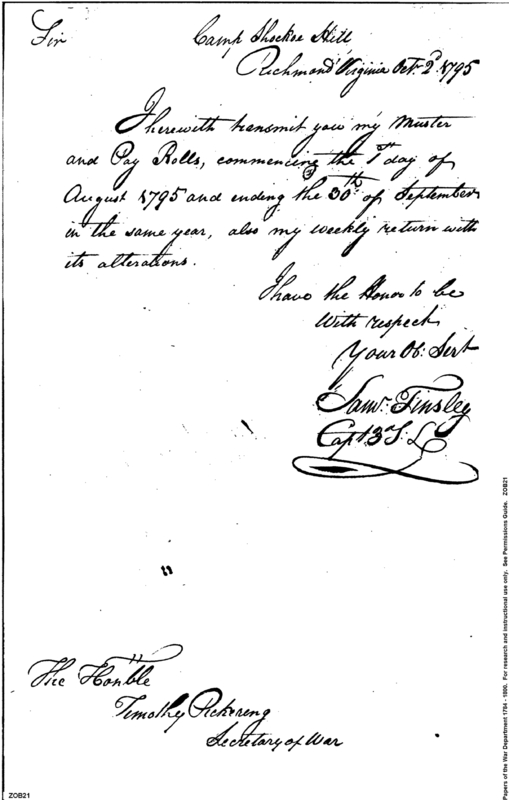 Sir
Camp Shockoe Hill
Richmond Virginia Octr. 2d. 1795
I herewith transmit you my Muster
and Pay Rolls, commencing the 1st day of
August 1795 and ending the 30th of September
in the same year, also my weekly return with
its alterations.
I have the Honor to be
With respect
Your Ob: Sert
Saml: Tinsley
Capt 3d S: L
The Honble
Timothy Pickereng
Secretary of War
ZOB21
Papers of the War Department 1784 - 1800. For research and instructional use only. See Permissions Guide. ZOB21